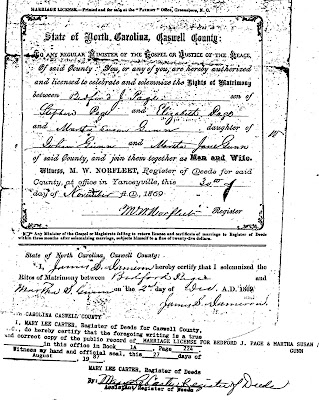 MARRIAGE LICENSE.—Printed and for sale at the "PATRIOT" Office, Greensboro, N. C.
State of North Carolina, Caswell County:
TO ANY REGULAR MINISTER OF THE GOSPEL OR JUSTICE OF THE PEACE,
Of said County: You, or any of you, are hereby authorized
and licensed to celebrate and solemnize the Rights of Matrimony
between Bedford J. Page son of
Stephen Page and Elizabeth Page
and Martha Susan Gunn daughter of
John Gunn and Martha Jane Gunn
of said County, and join them together as Man and Wife.
Witness, M. W. NORFLEET, Register of Deeds for said
County, at office in Yanceyville, this 30th
day of November A.D. 1869
M. W. Norfleet Register
Any Minister of the Gospel or Magistrate failing to return license and certificate of marriage to Register of Deeds
within three months after solemnizing marriage, subjects himself to a fine of twenty-five dollars.
State of North Carolina, Caswell County:
I, James S. hereby certify that I solemnized the
Rites of Matrimony between Bedford Page and
Martha S. Gunn on the 2nd day of Dec. A.D. 1869
James S.
CAROLINA CASWELL COUNTY
I, MARY LEE CARTER, Register of Deeds for Caswell County,
do hereby certify that the foregoing writing is a true
and correct copy of the public record of MARRIAGE LICENSE FOR BEDFORD J. PAGE & MARTHA SUSAN
GUNN
in this office in Book 1a Page 234
Witness my hand and official seal, this 27 days of
August 1987
MARY LEE CARTER, Register of Deeds
By: Register of Deeds
Assistant Register of Deeds